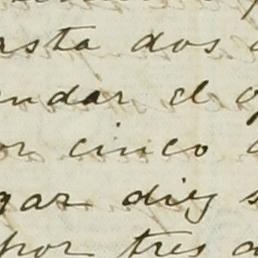 rsta dos
endar el
or cinco
gar diez
por tres